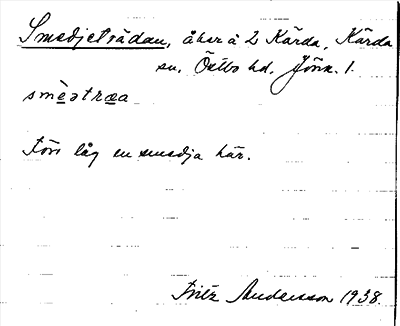 Smedjeträdan, åker å 2 Kärda, Kärda
sn, Östbo hd, Jönk. l.
smèətræa
Förr låg en smedja här.
Fritz Andersson 1938.